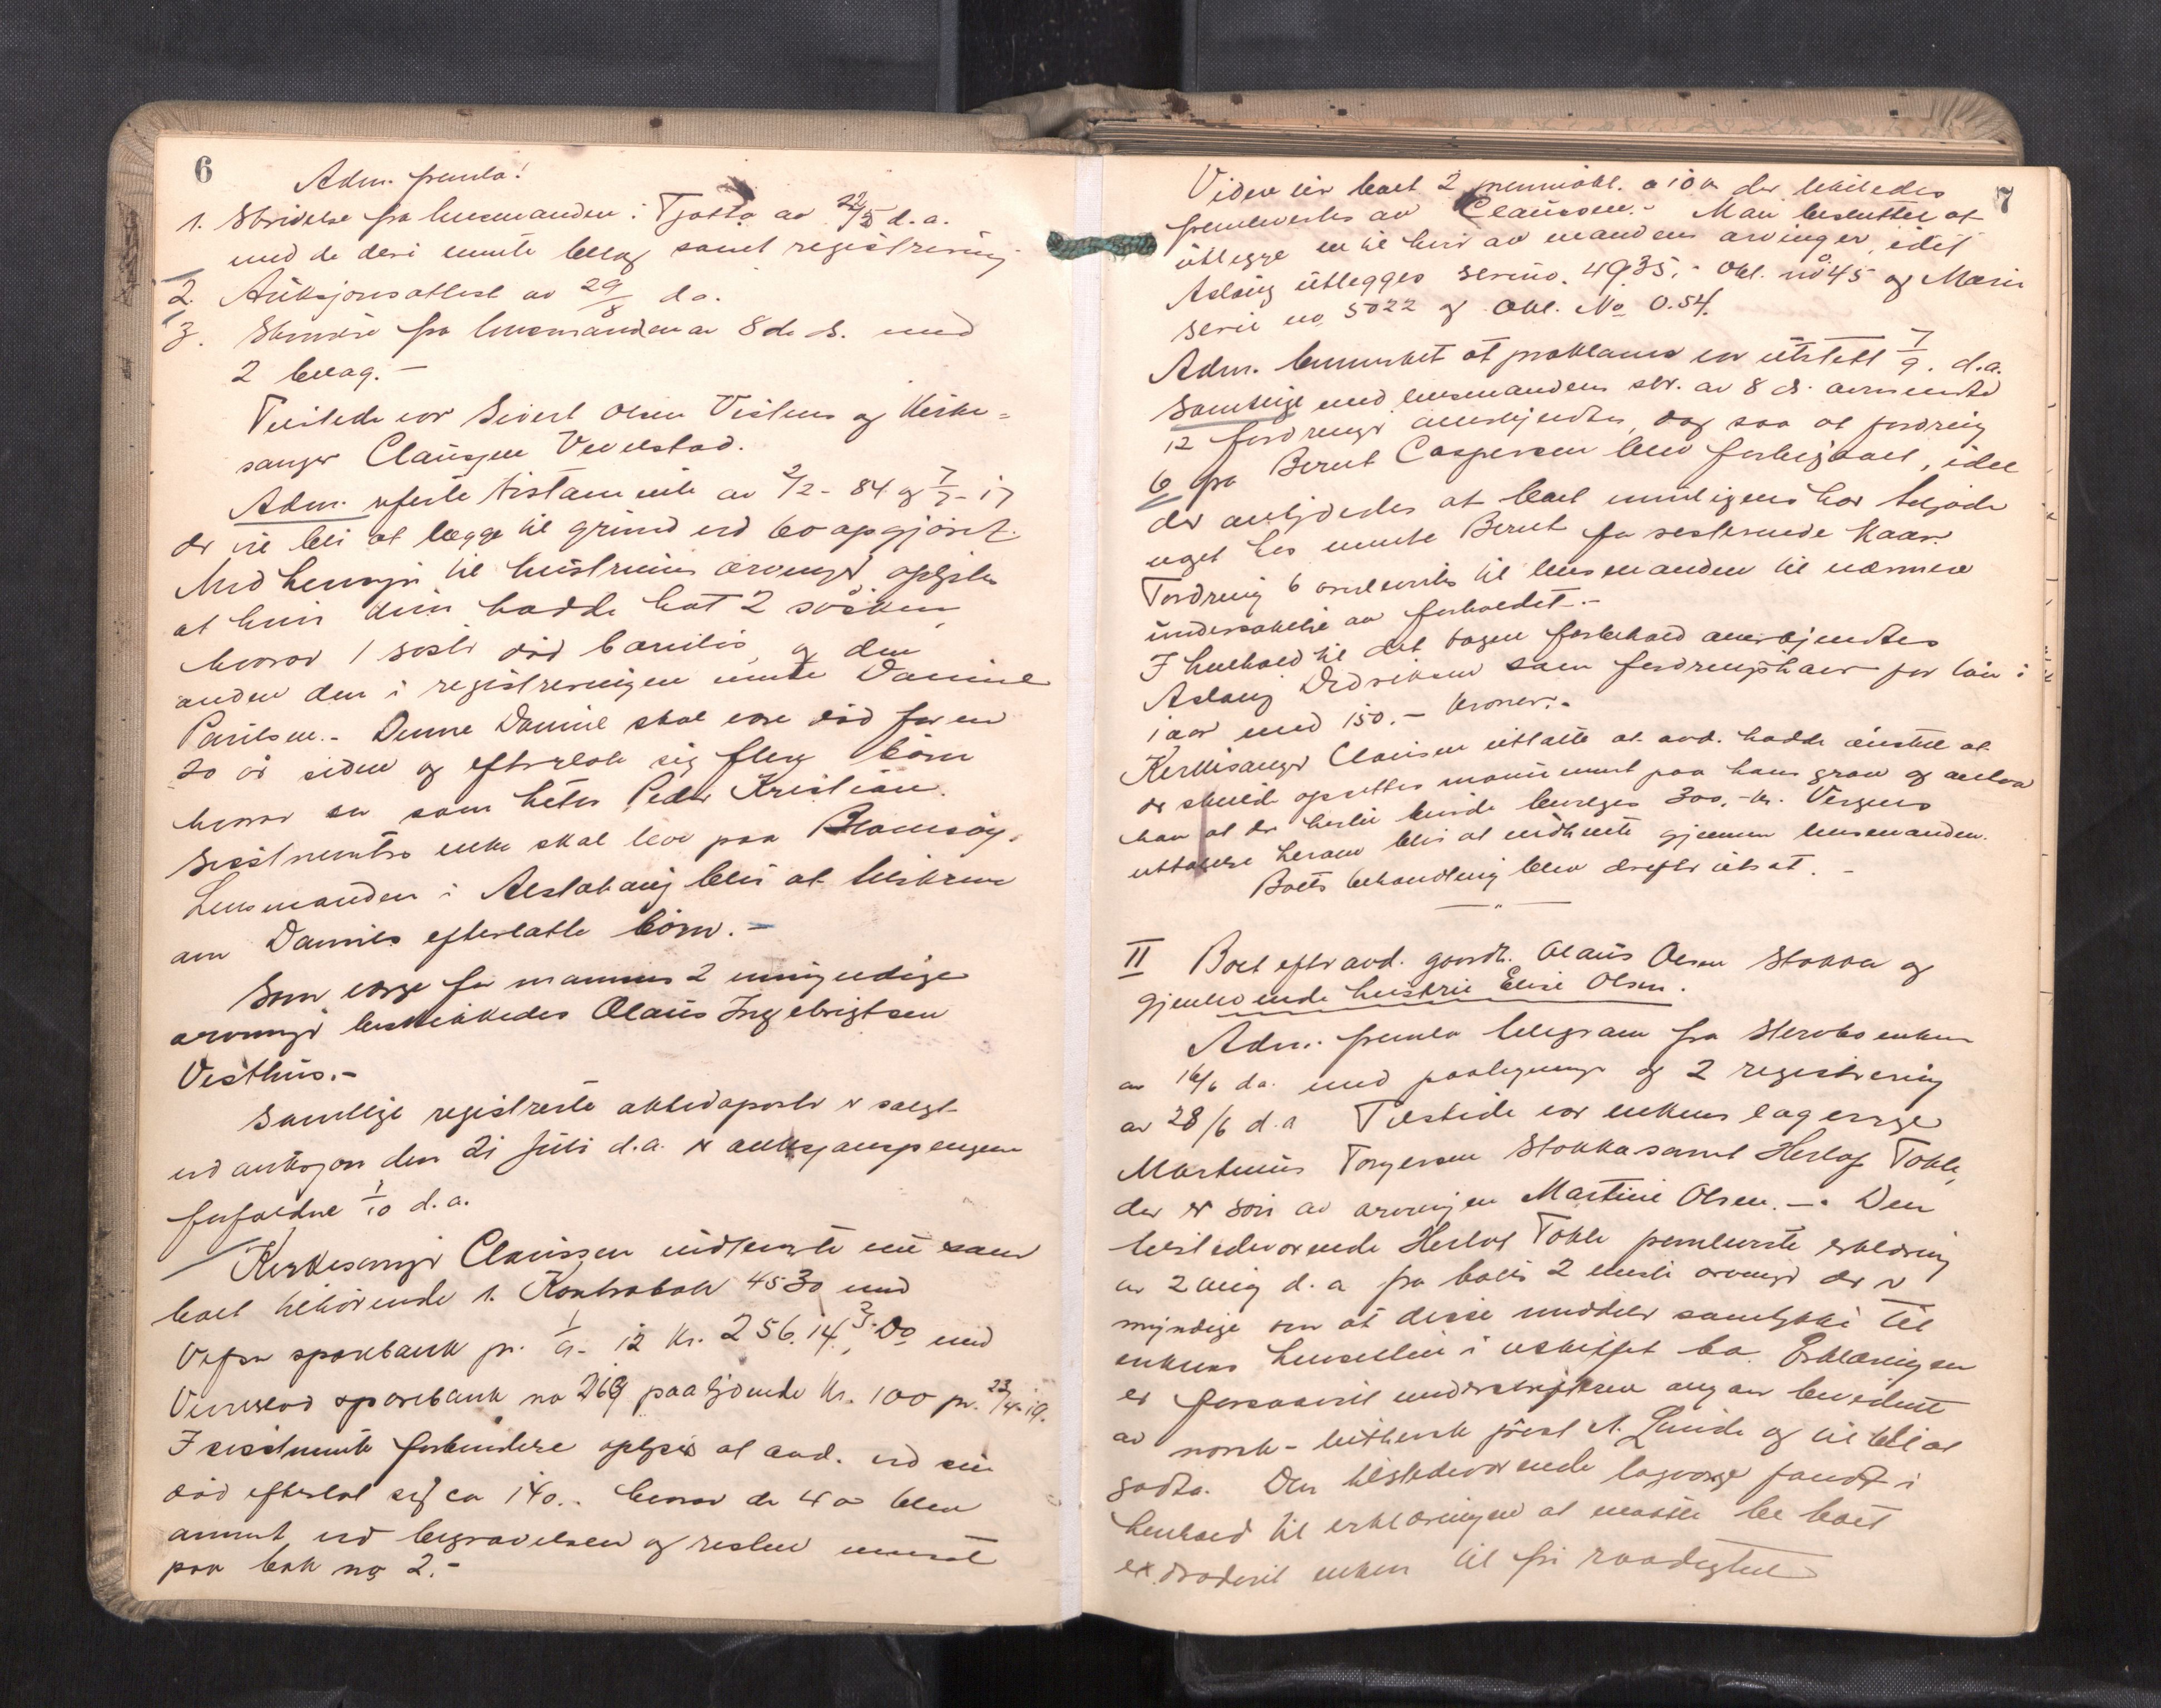 6
Adm. fremla!
1. Skrivelse fra lensmanden i Tjøtta av 22/5 d.a.
med de deri nævnte bilag samt registrering
2. Auksjonsattest av 29/8 d.a.
3. Skrivelse fra lensmanden av 8 de ds. med
2 bilag. -
Tilstede var Sivert Olsen Vistnes og Kirke=
sanger Claussen Vevelstad.
Adm. refererte testamente av 2/2 - 84 og 7/7 - 17
der vil bli at lægge til grund ved boopgjöret.
Med hensyn til hustruens arvinger oplystes
at hun kun hadde hat 2 søsken,
hvorav 1 søster død barnløs, og den
anden den i registreringen nævnte Daniel
Paulsen. - Denne Daniel skal være död for en
20 år siden og efterlot sig flere börn
hvorav en som heter Peder Kristian.
Sistnevntes enke skal leve paa Blomsöy.
Lensmanden i Alstahaug blir at tilskrive
om Daniels efterlatte börn. -
Som verge for mannens 2 umyndige
arvinger beskikkedes Olaus Ingebrigtsen
Visthus. -
Samtlige registrerte aktivaposter er solgt
ved auksjon den 21 juli d.a. & auksjonspengene
forfaldne 1/10 d.a.
Kirkesanger Claussen indleverte nu som
boet tilhörende 1. Kontrabok 4530 med
Vefsn sparebank pr. 1/9 - 12 Kr. 256.14, 3. Do med
Vevelstad sparebank no 269 paalydende Kr. 100 pr. 23/4 - 19.
I sistnevnte forbindelse oplyses at avd. ved sin
död efterlot sig ca 140.- hvorav de 40 blev
anvendt ved begravelsen og resten innsat
paa bok no 2. -
7
Videre eier boet 2 premieobl. a 10 kr der likeledes
fremlevertes av Claussen. - Man besluttet at
utlegge en til hver av mandens arvinger, idet
Aslaug utlegges serieno. 4935. - Obl. no 45 og Marie
serie no 5022 og Obl. No 0.54.
Adm. bemerket at proklama er utstedt 7/9. d.a.
Samtlige med lensmandens skr. av 8 ds. anmeldte
12 fordringer anerkjendtes, dog saa at fordring
6 fra Bernt Caspersen blev forbigaaet, idet
der antydedes at boet muligens har tilgode
noget hos nevnte Bernt for resterende Kaar.
Fordring 6 oversendes til lensmanden til nærmere
undersøkelse av forholdet. -
I henhold til det tagne forbehold anerkjendtes
Aslaug Didriksen som fordringshaver for lön i
1 aar med 150. - Kroner. -
Kirkesanger Claussen uttalte at avd. hadde ønsket at
der skulde opsettes monument paa hans grav og antok
han at der hertil burde bevilges 300, - kr. Vergens
uttalelse herom blir at indhente gjennem lensmanden.
Boets behandling blev derefter utsat. -
II Boet efter avd. gaardb. Olaus Olsen Stokka og
gjenlevende hustru Elise Olsen.
Adm. fremla telegram fra Stervbo enken
av 16/6 da. med paategning og 2 registrering
av 28/6 d.a Tilstede var enkens lagverge
Martinus Torgersen Stokka samt Herlof Tokle,
der er sön av arvingen Martine Olsen. - . Den
tilstedeværende Herlof Tokle fremleverte erklæring
av 2 aug d.a fra boets 2 eneste arvinger der er
myndige om at disse meddeler samtykke til
enkens hensitten i uskiftet bo. Erklæringen
er forsaavidt underskriften angaar bevidnet
av norsk - luthersk prest A. Lunde og vil bli at
godta. Den tilstedeværende lagverge fandt i
henhold til erklæringen at maatte be boet
extraderet enken til fri raadighet